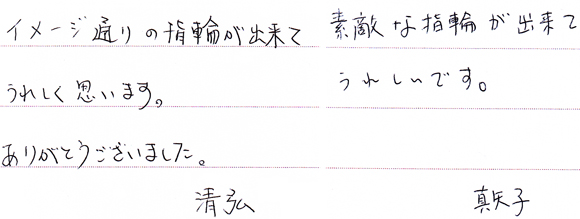 イメージ通りの指輪が出来て
うれしく思います。
ありがとうございました。
清弘
素敵な指輪が出来て
うれしいです。
真矢子